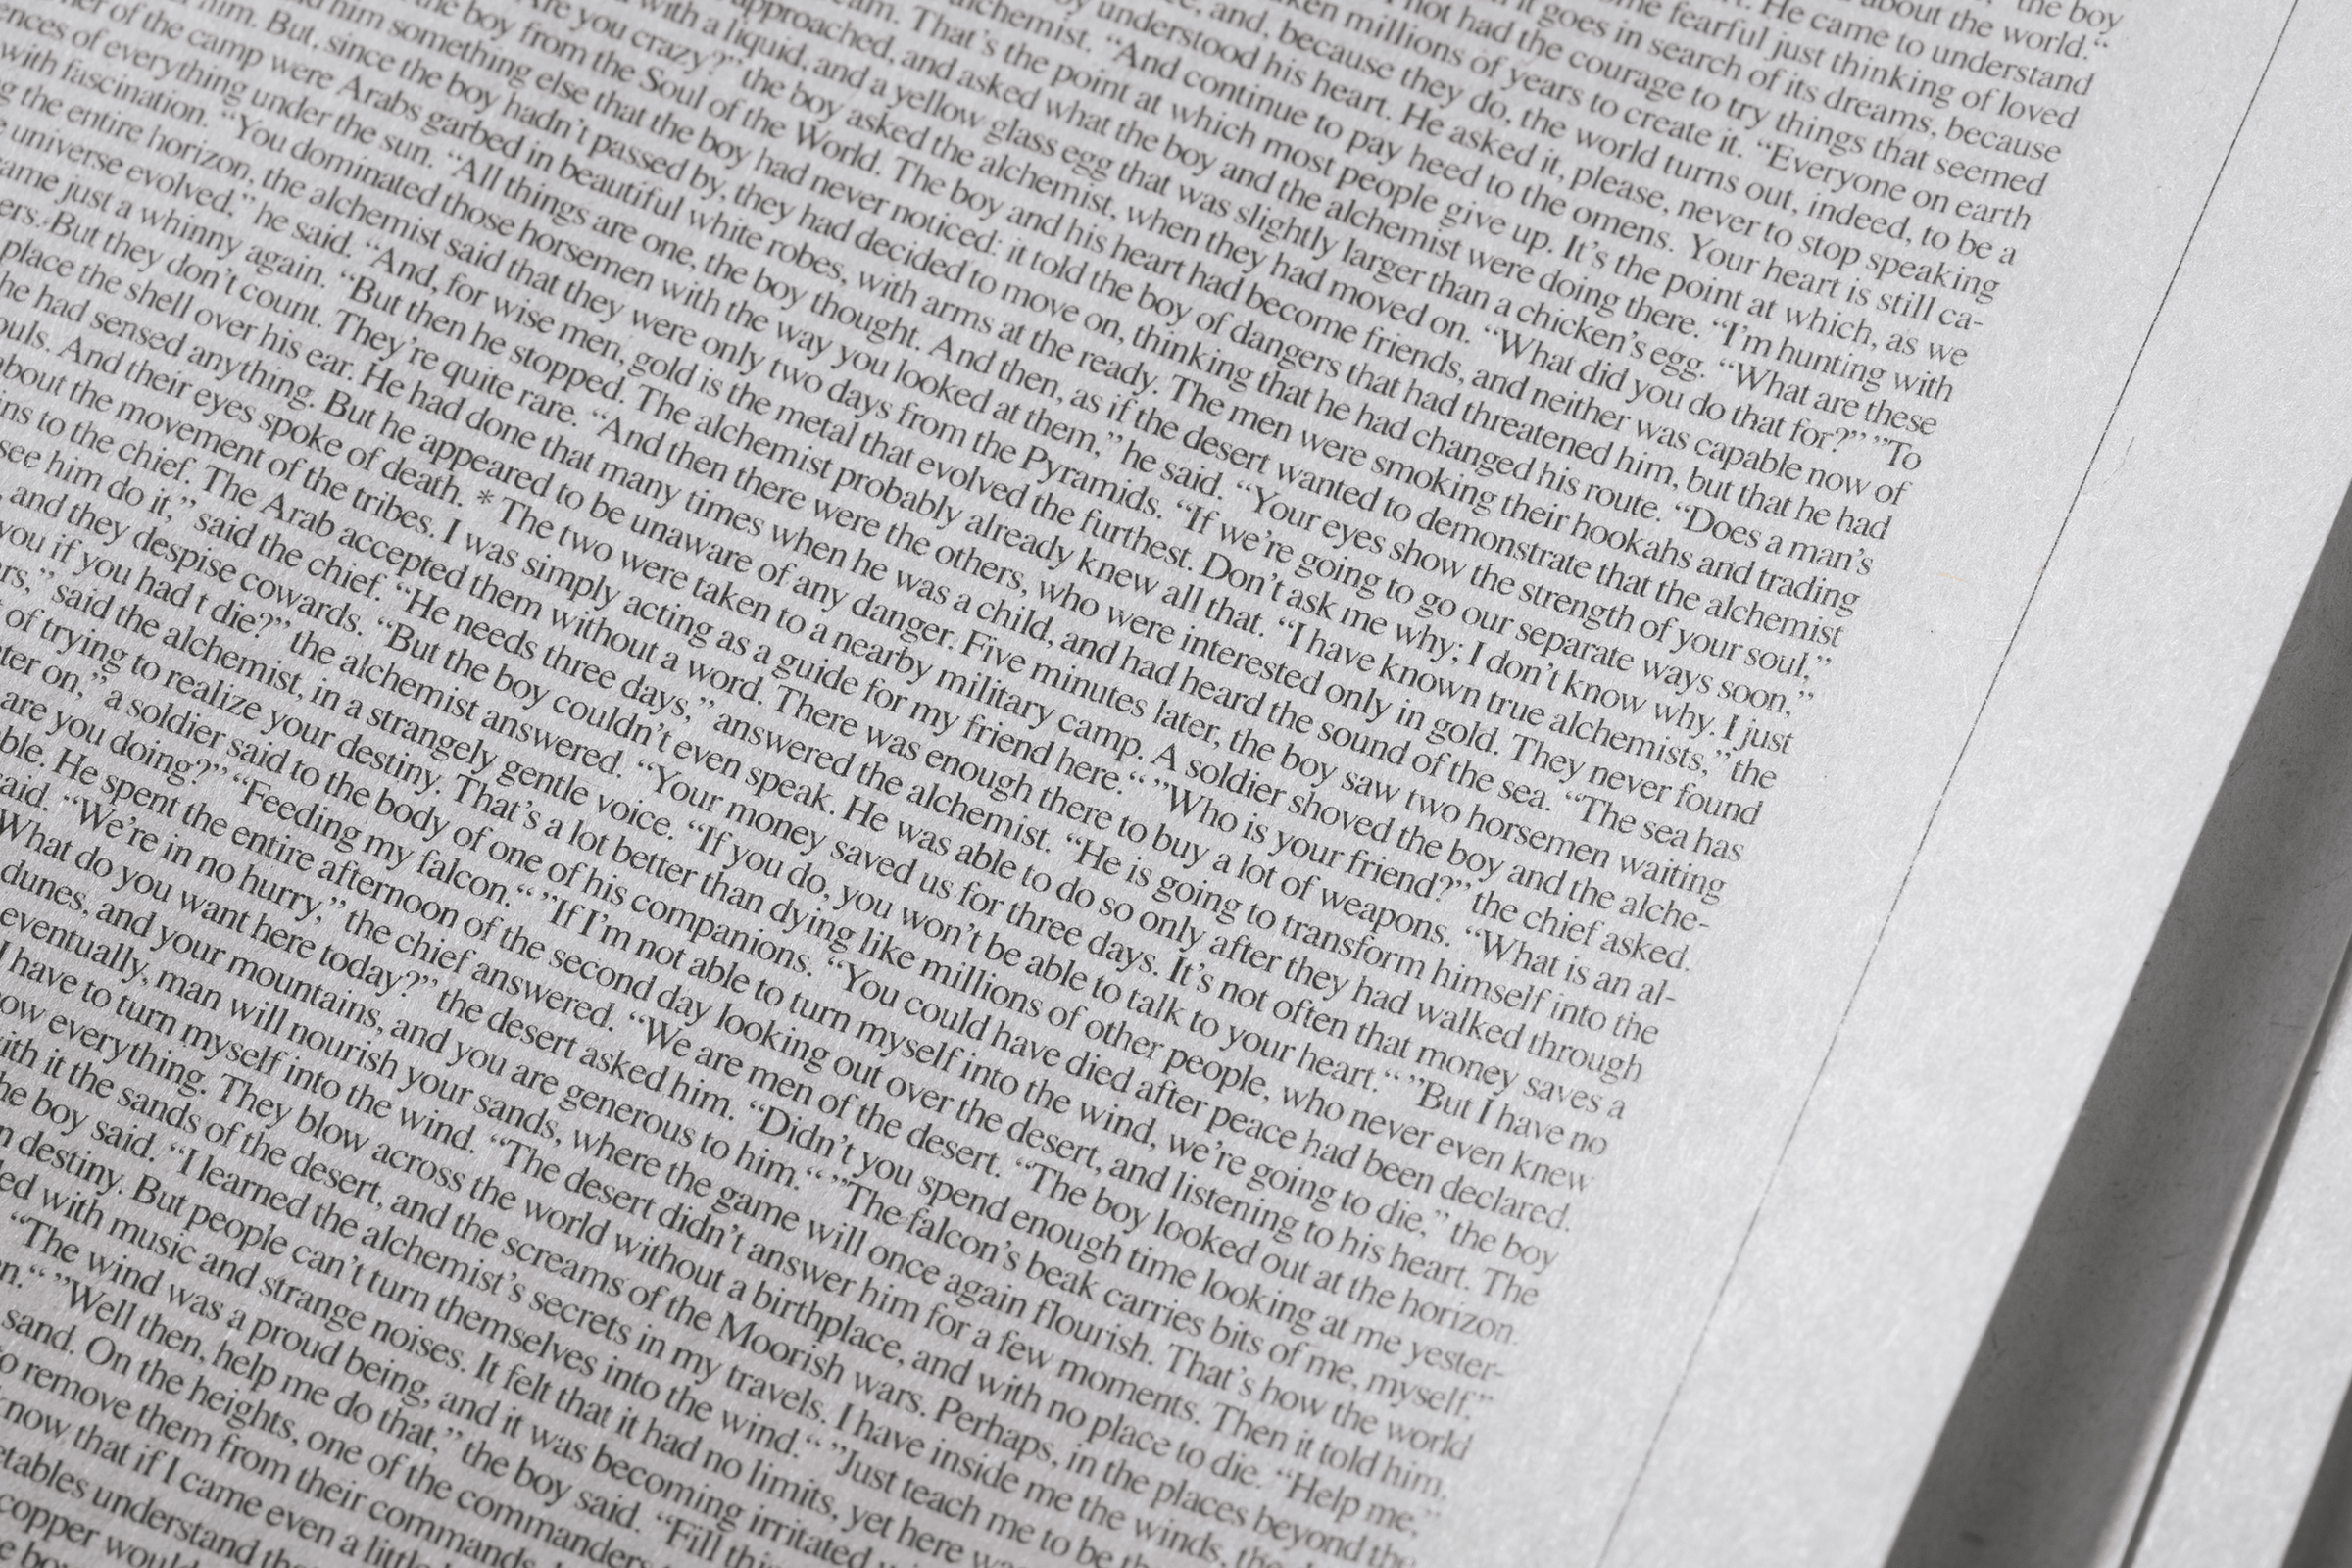 the boy
about the world.“
He came to understand
fearful just thinking of loved
it goes in search of its dreams, because
not had the courage to try things that seemed
millions of years to create it. “Everyone on earth
and, because they do, the world turns out, indeed, to be a
understood his heart. He asked it, please, never to stop speaking
lchemist. “And continue to pay heed to the omens. Your heart is still ca-
eam. That’s the point at which most people give up. It’s the point at which, as we
approached, and asked what the boy and the alchemist were doing there. “I’m hunting with
with a liquid, and a yellow glass egg that was slightly larger than a chicken’s egg. “What are these
Are you crazy?” the boy asked the alchemist, when they had moved on. “What did you do that for?” ”To
the boy from the Soul of the World. The boy and his heart had become friends, and neither was capable now of
him something else that the boy had never noticed: it told the boy of dangers that had threatened him, but that he had
him. But, since the boy hadn’t passed by, they had decided to move on, thinking that he had changed his route. “Does a man’s
ief of the camp were Arabs garbed in beautiful white robes, with arms at the ready. The men were smoking their hookahs and trading
ences of everything under the sun. “All things are one, the boy thought. And then, as if the desert wanted to demonstrate that the alchemist
with fascination. “You dominated those horsemen with the way you looked at them,” he said. “Your eyes show the strength of your soul,”
g the entire horizon, the alchemist said that they were only two days from the Pyramids. “If we’re going to go our separate ways soon,”
e universe evolved,” he said. “And, for wise men, gold is the metal that evolved the furthest. Don’t ask me why; I don’t know why. I just
ame just a whinny again. “But then he stopped. The alchemist probably already knew all that. “I have known true alchemists,” the
ers. But they don’t count. They’re quite rare. “And then there were the others, who were interested only in gold. They never found
place the shell over his ear. He had done that many times when he was a child, and had heard the sound of the sea. “The sea has
he had sensed anything. But he appeared to be unaware of any danger. Five minutes later, the boy saw two horsemen waiting
ouls. And their eyes spoke of death. * The two were taken to a nearby military camp. A soldier shoved the boy and the alche-
about the movement of the tribes. I was simply acting as a guide for my friend here.“ ”Who is your friend?” the chief asked.
ins to the chief. The Arab accepted them without a word. There was enough there to buy a lot of weapons. “What is an al-
see him do it,” said the chief. “He needs three days,” answered the alchemist. “He is going to transform himself into the
, and they despise cowards. “But the boy couldn’t even speak. He was able to do so only after they had walked through
you if you had t die?” the alchemist answered. “Your money saved us for three days. It’s not often that money saves a
rs,” said the alchemist, in a strangely gentle voice. “If you do, you won’t be able to talk to your heart.“ ”But I have no
of trying to realize your destiny. That’s a lot better than dying like millions of other people, who never even knew
ter on,” a soldier said to the body of one of his companions. “You could have died after peace had been declared.
are you doing?” “Feeding my falcon.“ ”If I’m not able to turn myself into the wind, we’re going to die,” the boy
ble. He spent the entire afternoon of the second day looking out over the desert, and listening to his heart. The
said. “We’re in no hurry,” the chief answered. “We are men of the desert. “The boy looked out at the horizon.
What do you want here today?” the desert asked him. “Didn’t you spend enough time looking at me yester-
dunes, and your mountains, and you are generous to him.“ ”The falcon’s beak carries bits of me, myself.”
eventually, man will nourish your sands, where the game will once again flourish. That’s how the world
I have to turn myself into the wind. “The desert didn’t answer him for a few moments. Then it told him
ow everything. They blow across the world without a birthplace, and with no place to die. “Help me,”
ith it the sands of the desert, and the screams of the Moorish wars. Perhaps, in the places beyond the
he boy said. “I learned the alchemist’s secrets in my travels. I have inside me the winds, the
n destiny. But people can’t turn themselves into the wind.“ ”Just teach me to be
ed with music and strange noises. It felt that it had no limits, yet here
“The wind was a proud being, and it was becoming irritated
n.“ ”Well then, help me do that,” the boy said. “Fill this
sand. On the heights, one of the commanders
to remove them from their commands
know that if I came even a little
etables understand
copper would